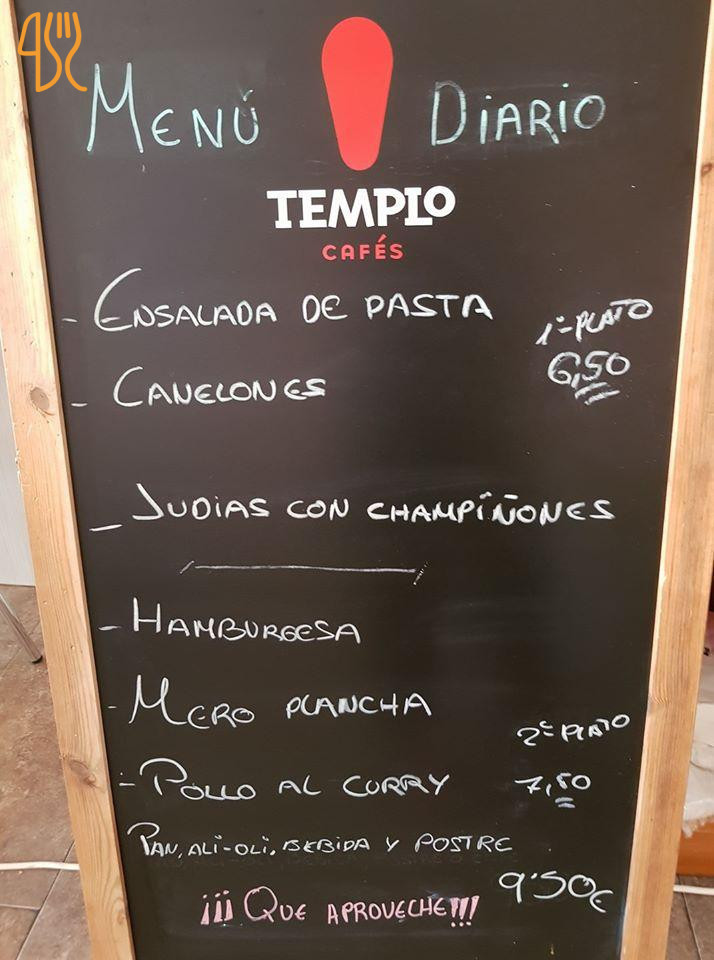 MENÚ DIARIO
TEMPLO
CAFÉS
- ENSALADA DE PASTA
1º PLATO
- CANELONES
6,50
- JUDIAS CON CHAMPIÑONES
- HAMBURGESA
- MERO PLANCHA
2º PLATO
- POLLO AL CURRY
7,50
PAN, ALI-OLI, BEBIDA Y POSTRE
9'50€
¡¡¡ QUE APROVECHE!!!